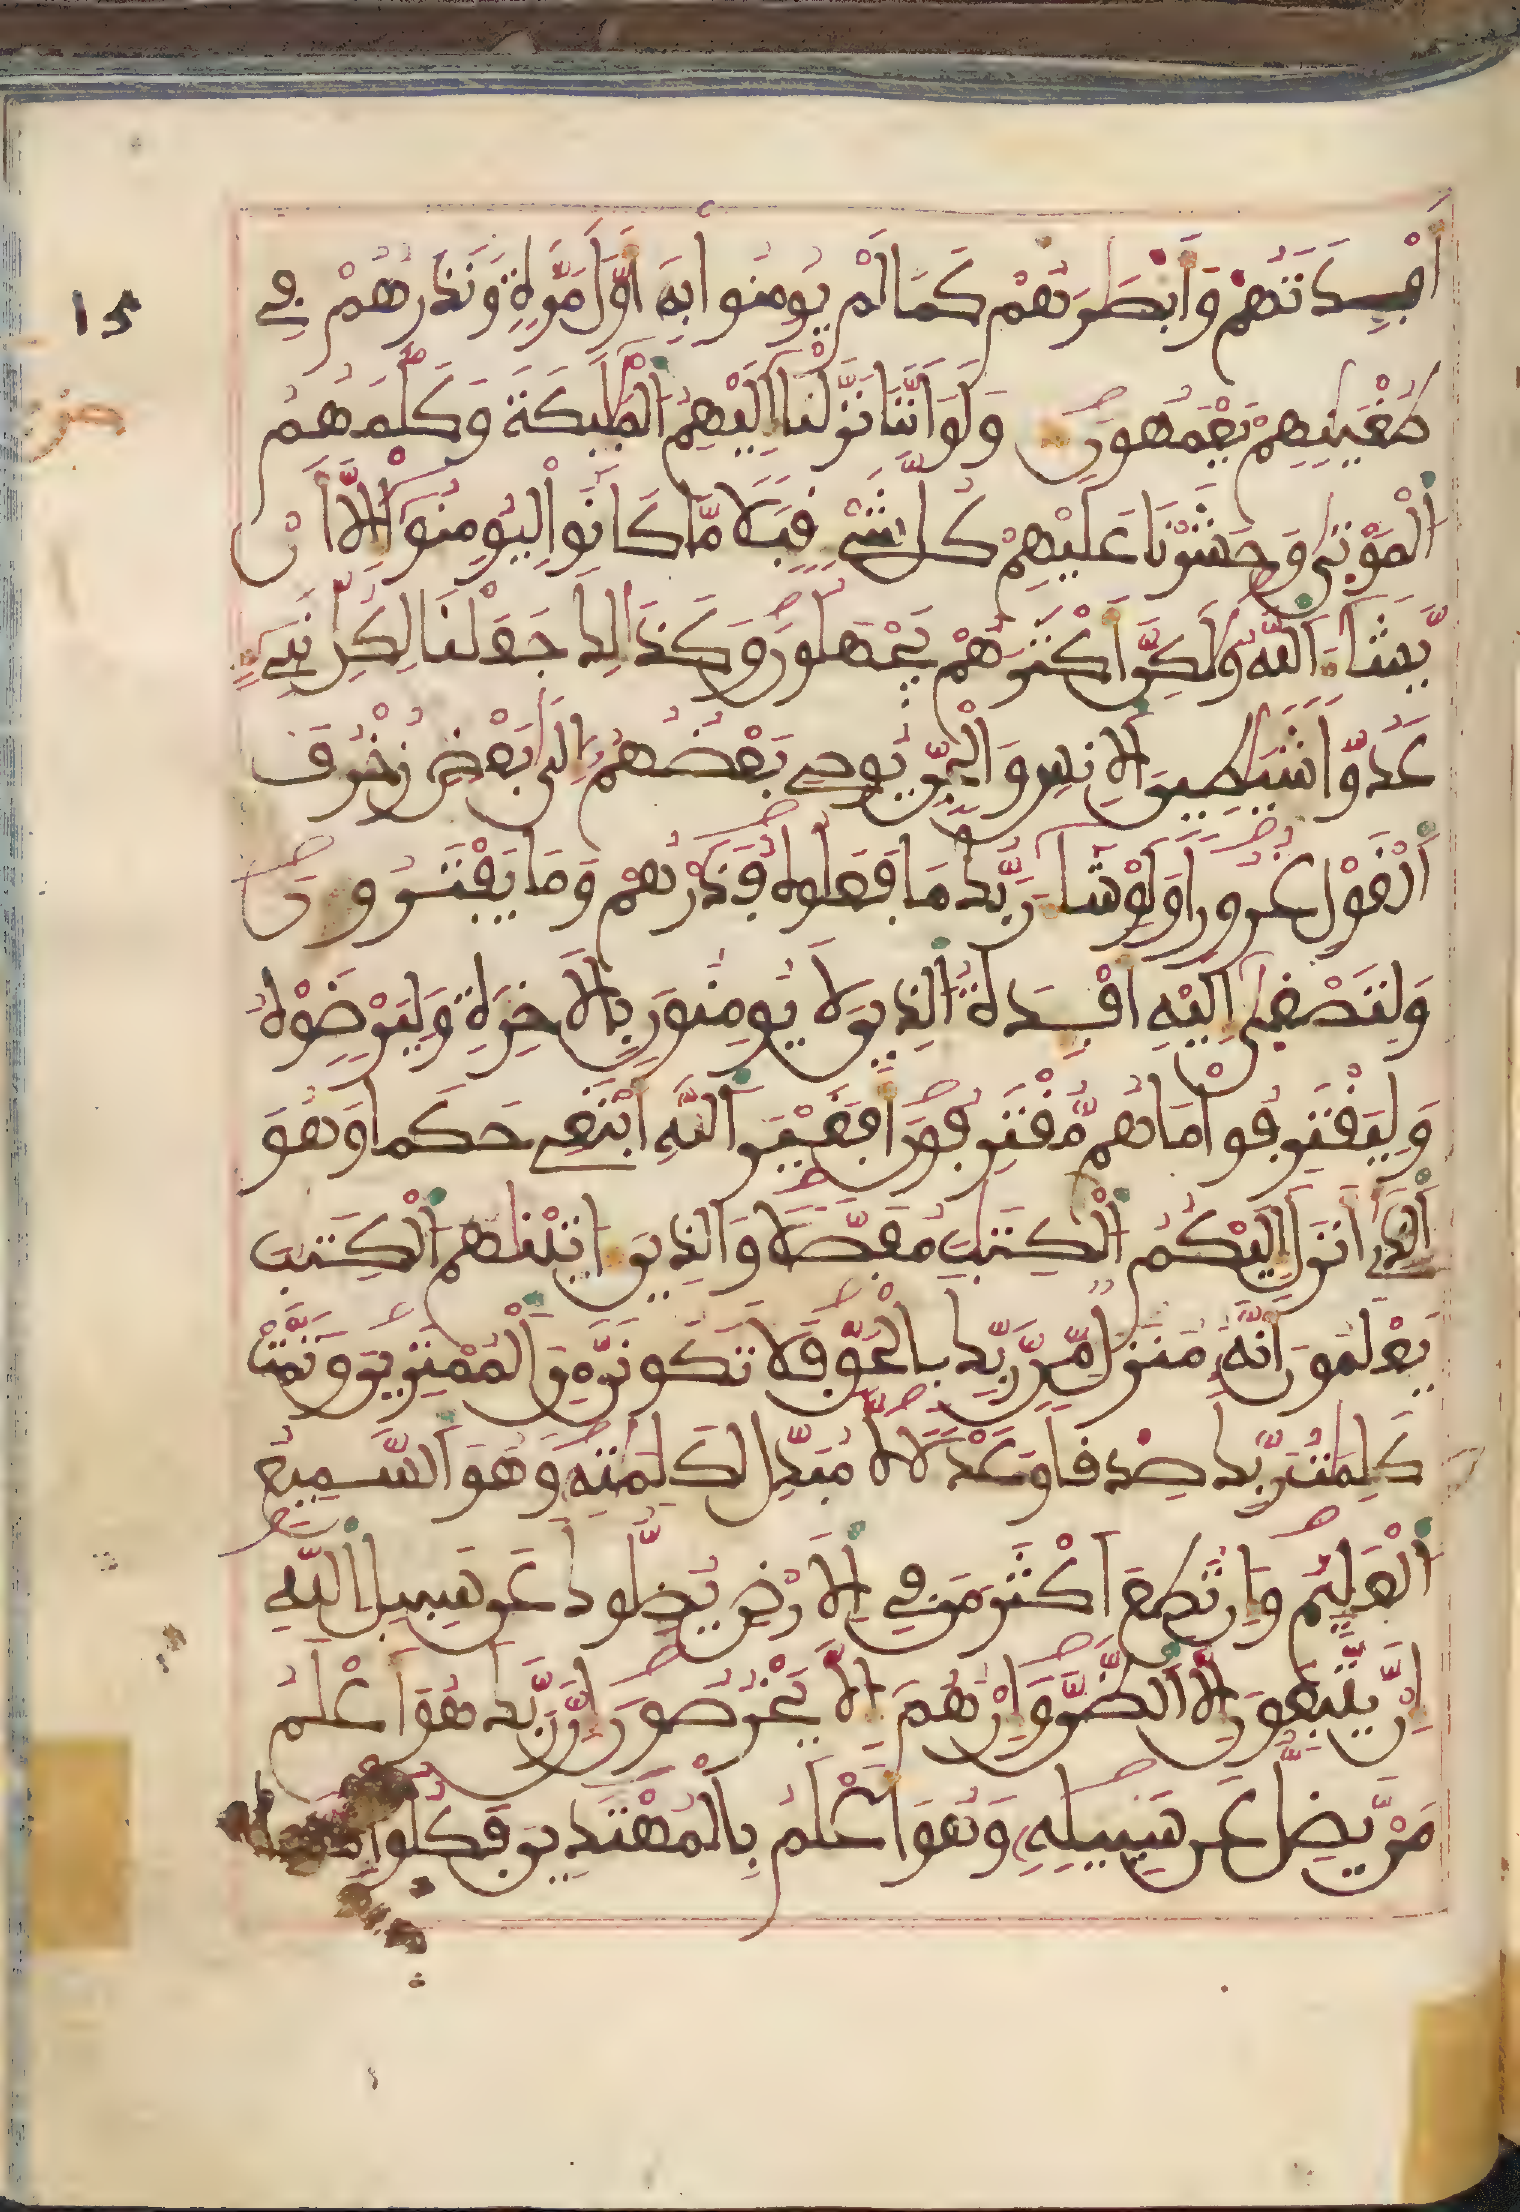 أَفْـِٕدَتَهُمْ وَأَبْصَٰرَهُمْ كَمَا لَمْ يُومِنُوا۟ بِهِۦٓ أَوَّلَ مَرَّةٖ وَنَذَرُهُمْ فِے
طُغْيَٰنِهِمْ يَعْمَهُونَ وَلَوَ اَنَّنَا نَزَّلْنَآ إِلَيْهِمُ اُ۬لْمَلَٰٓئِكَةَ وَكَلَّمَهُمُ
اُ۬لْمَوْتَىٰ وَحَشَرْنَا عَلَيْهِمْ كُلَّ شَےْءٖ قِبَلًا مَّا كَانُوا۟ لِيُومِنُوٓا۟ إِلَّآ أَنْ
يَّشَآءَ اَ۬للَّهُ وَلَٰكِنَّ أَكْثَرَهُمْ يَجْهَلُونَ وَكَذَٰلِكَ جَعَلْنَا لِكُلِّ نَبِےٓءٍ
عَدُوّٗا شَيَٰطِينَ اَ۬لِانسِ وَالْجِنِّ يُوحِے بَعْضُهُمُۥٓ إِلَىٰ بَعْضٖ زُخْرُفَ
اَ۬لْقَوْلِ غُرُورٗا وَلَوْ شَآءَ رَبُّكَ مَا فَعَلُوهُ فَذَرْهُمْ وَمَا يَفْتَرُونَ
وَلِتَصْغَىٰٓ إِلَيْهِ أَفْـِٕدَةُ اُ۬لذِينَ لَا يُومِنُونَ بِالَاخِرَةِ وَلِيَرْضَوْهُ
وَلِيَقْتَرِفُوا۟ مَا هُم مُّقْتَرِفُونَ أَفَغَيْرَ اَ۬للَّهِ أَبْتَغِے حَكَمٗا وَهُوَ
اَ۬لذِےٓ أَنزَلَ إِلَيْكُمُ اُ۬لْكِتَٰبَ مُفَصَّلٗا وَالذِينَ ءَاتَيْنَٰهُمُ اُ۬لْكِتَٰبَ
يَعْلَمُونَ أَنَّهُۥ مُنزَلٞ مِّن رَّبِّكَ بِالْحَقِّ فَلَا تَكُونَنَّ مِنَ اَ۬لْمُمْتَرِينَ وَتَمَّتْ
كَلِمَٰتُ رَبِّكَ صِدْقٗا وَعَدْلٗا لَّا مُبَدِّلَ لِكَلِمَٰتِهِۦ وَهُوَ اَ۬لسَّمِيعُ
اُ۬لْعَلِيمُ وَإِن تُطِعَ اَكْثَرَ مَن فِے اِ۬لَارْضِ يُضِلُّوكَ عَن سَبِيلِ اِ۬للَّهِ
إِنْ يَّتَّبِعُونَ إِلَّا اَ۬لظَّنَّ وَإِنْ هُمُۥٓ إِلَّا يَخْرُصُونَ إِنَّ رَبَّكَ هُوَ أَعْلَمُ
مَنْ يَّضِلُّ عَن سَبِيلِهِۦ وَهُوَ أَعْلَمُ بِالْمُهْتَدِينَ فَكُلُوا۟